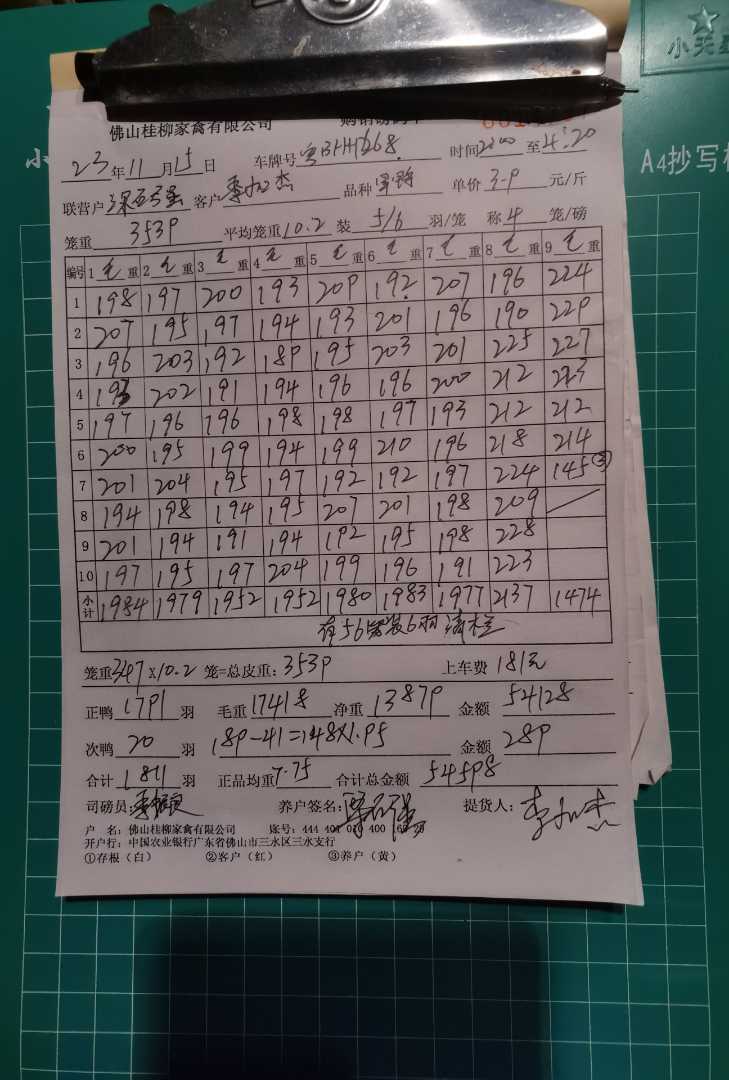 小天星
佛山桂柳家禽有限公司
A4抄写
23年11月15日 车牌号 时间 至4:20
联营户 客户 品种 单价3-9元/斤
笼重3539 平均笼重10.2 装5/6羽/笼 称4笼/磅
编号 1毛重 2毛重 3毛重 4毛重 5毛重 6毛重 7毛重 8毛重 9毛重
1 198 197 200 193 209 192 207 196 224
2 207 195 197 194 193 201 196 190 229
3 196 203 192 189 195 203 201 225 227
4 193 202 191 194 196 196 200 212 223
5 197 196 196 198 198 197 193 212 212
6 200 195 199 194 199 210 196 218 214
7 201 204 195 197 192 192 197 224 145③
8 194 198 194 195 207 201 198 209
9 201 194 191 194 192 195 198 228
10 197 195 197 204 199 196 191 223
小计 1984 1979 1952 1952 1980 1983 1977 2137 1474
有56笼装6羽
笼重347×10.2笼=总皮重:3539 上车费181元
正鸭1791羽 毛重17418 净重13879 金额54128
次鸭20羽 189-41=148×1.95 金额289
合计1811羽 正品均重7.75 合计总金额54598
司磅员: 养户签名: 提货人:
户 名:佛山桂柳家禽有限公司 账号:444 400
开户行:中国农业银行广东省佛山市三水区三水支行
①存根(白) ②客户(红) ③养户(黄)